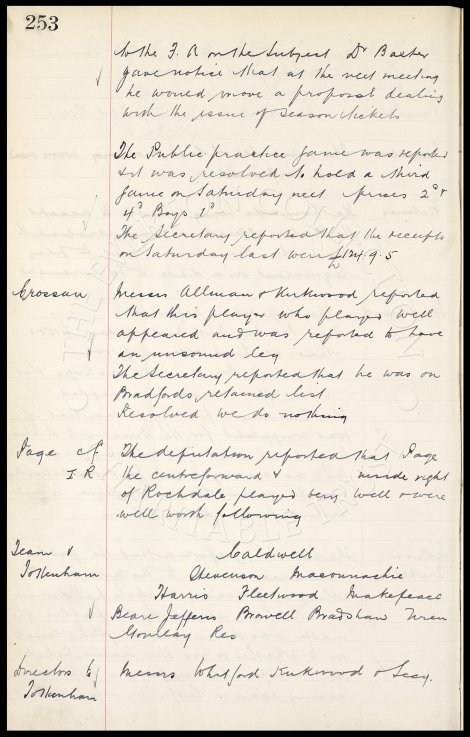 253
to the F. A on the subject Dr Baxter
gave notice that at the next meeting
he would move a proposal dealing
with the issue of season tickets
The Public practice game was reported
& it was resolved to hold a third
game on Saturday next prices 2d &
4d Boys 1d
The Secretary reported that the receipts
on Saturday last were £124.9.5
Crossan Messrs Allman & Kirkwood reported
that this player who played well
appeared and was reported to have
an unsound leg
The Secretary reported that he was on
Bradfords retained list
Resolved we do nothing
Page cf The deputation reported that Page
I.R the centreforward & inside right
of Rochdale played very well & were
well worth following
Team v Caldwell
Tottenham Stevenson Maconnachie
Harris Fleetwood Makepeace
Beare Jefferis Browell Bradshaw Wren
Gourlay Res
Directors to Messrs Whitford Kirkwood & Secy.
Tottenham